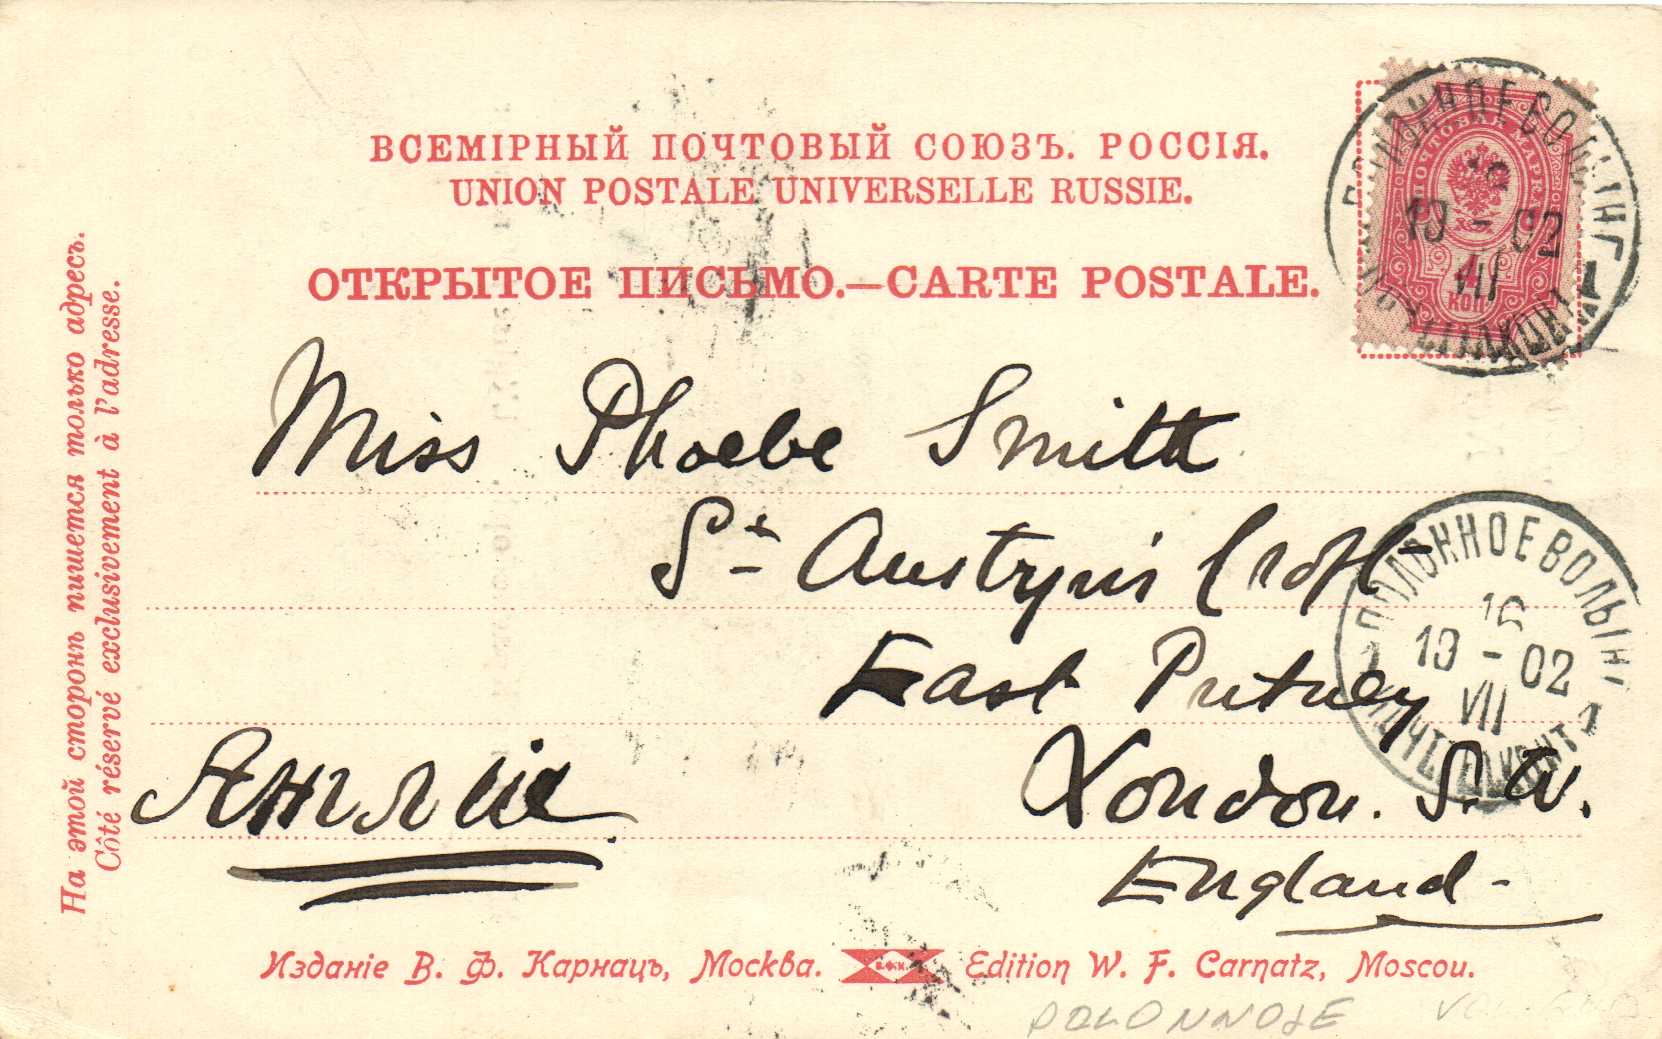 ВСЕМІРНЫЙ ПОЧТОВЫЙ СОЮЗЪ. РОССІЯ.
UNION POSTALE UNIVERSELLE RUSSIE.
ОТКРЫТОЕ ПИСЬМО.—CARTE POSTALE.
На этой сторонѣ пишется только адресъ.
Côté réservé exclusivement à l'adresse.
ПОЧТОВАЯ МАРКА
4
КОП.
16
19 - 02
VII
1
Miss Phoebe Smith
St Austyns Croft
East Putney
London. S. W.
England -
Англiя
ПОЛОННОЕ ВОЛЫН
16
19 - 02
VII
1
Изданіе В. Ф. Карнацъ, Москва.
В.Ф.К.
Edition W. F. Carnatz, Moscou.
POLONNOJE